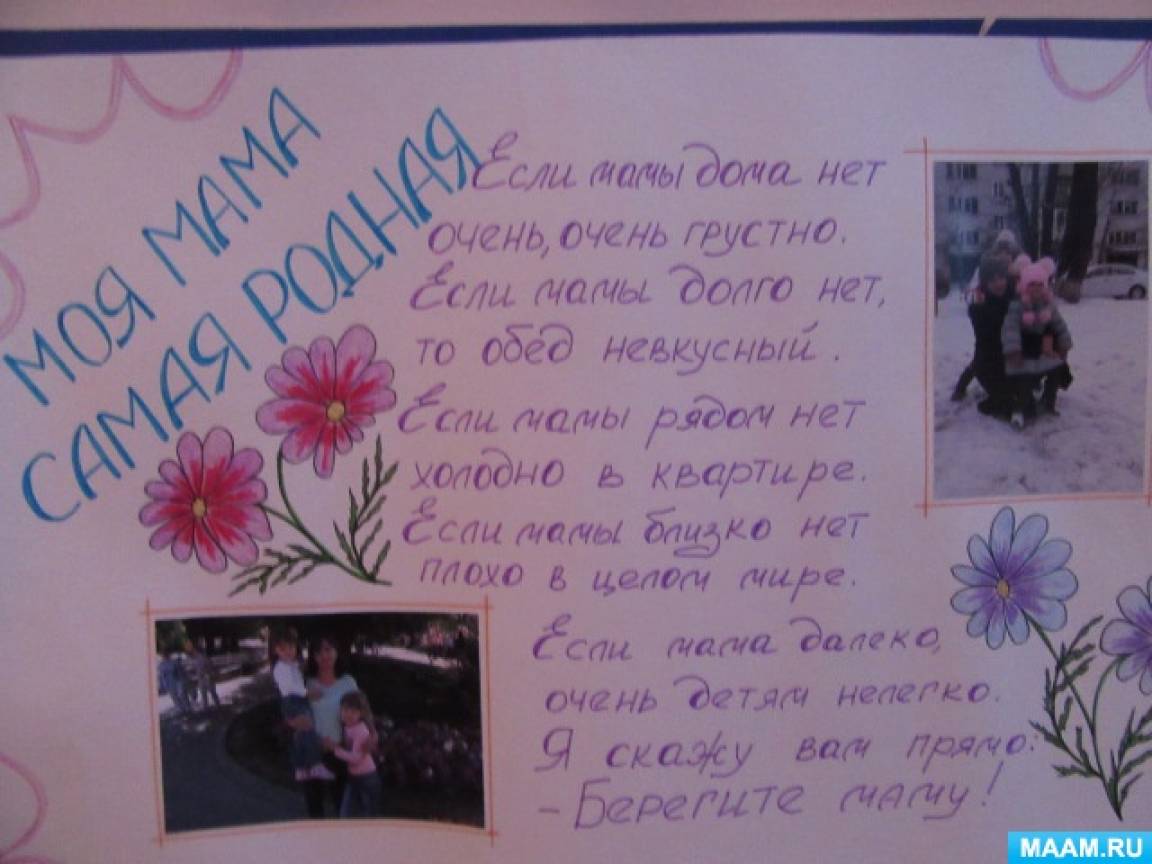 МОЯ МАМА
САМАЯ РОДНАЯ
Если мамы дома нет
очень, очень грустно.
Если мамы долго нет,
то обед невкусный.
Если мамы рядом нет
холодно в квартире.
Если мамы близко нет
плохо в целом мире.
Если мама далеко,
очень детям нелегко.
Я скажу вам прямо:
- Берегите маму!
MAAM.RU